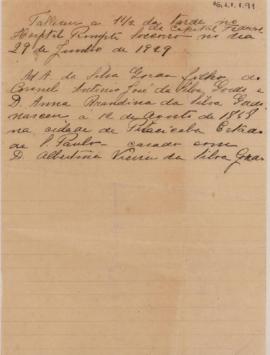 Falleceu a 1 1/2 da tarde no
da Capital Federal
Hospital Prompto Soccorro no dia
29 de Junho de 1929
M. A. da Silva Gordo filho do
Coronel Antonio José da Silva Gordo e
D. Anna Brandina da Silva Gordo
nasceu a 12 de Agosto de
na cidade de Piracicaba Estado
de S. Paulo - casado com
D. Albertina Vieira da Silva Gordo